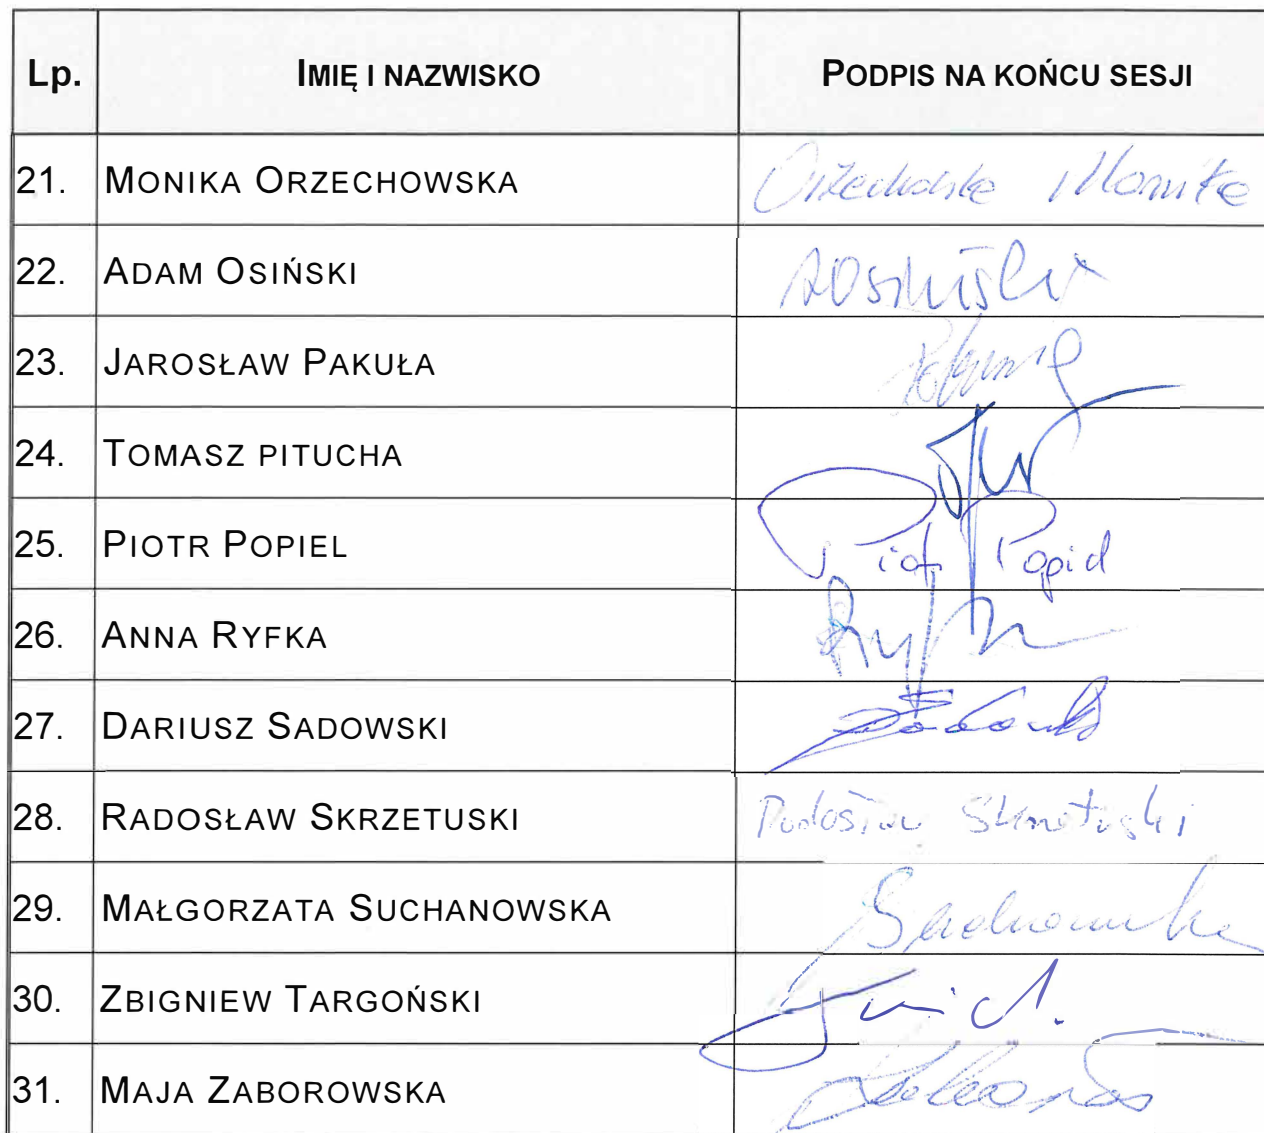 Lp. IMIĘ I NAZWISKO PODPIS NA KOŃCU SESJI
21. MONIKA ORZECHOWSKA Orzechowska Monika
22. ADAM OSIŃSKI AOsiński
23. JAROSŁAW PAKUŁA
24. TOMASZ PITUCHA
25. PIOTR POPIEL Piotr Popiel
26. ANNA RYFKA
27. DARIUSZ SADOWSKI
28. RADOSŁAW SKRZETUSKI Radosław Skrzetuski
29. MAŁGORZATA SUCHANOWSKA Suchanowska
30. ZBIGNIEW TARGOŃSKI
31. MAJA ZABOROWSKA